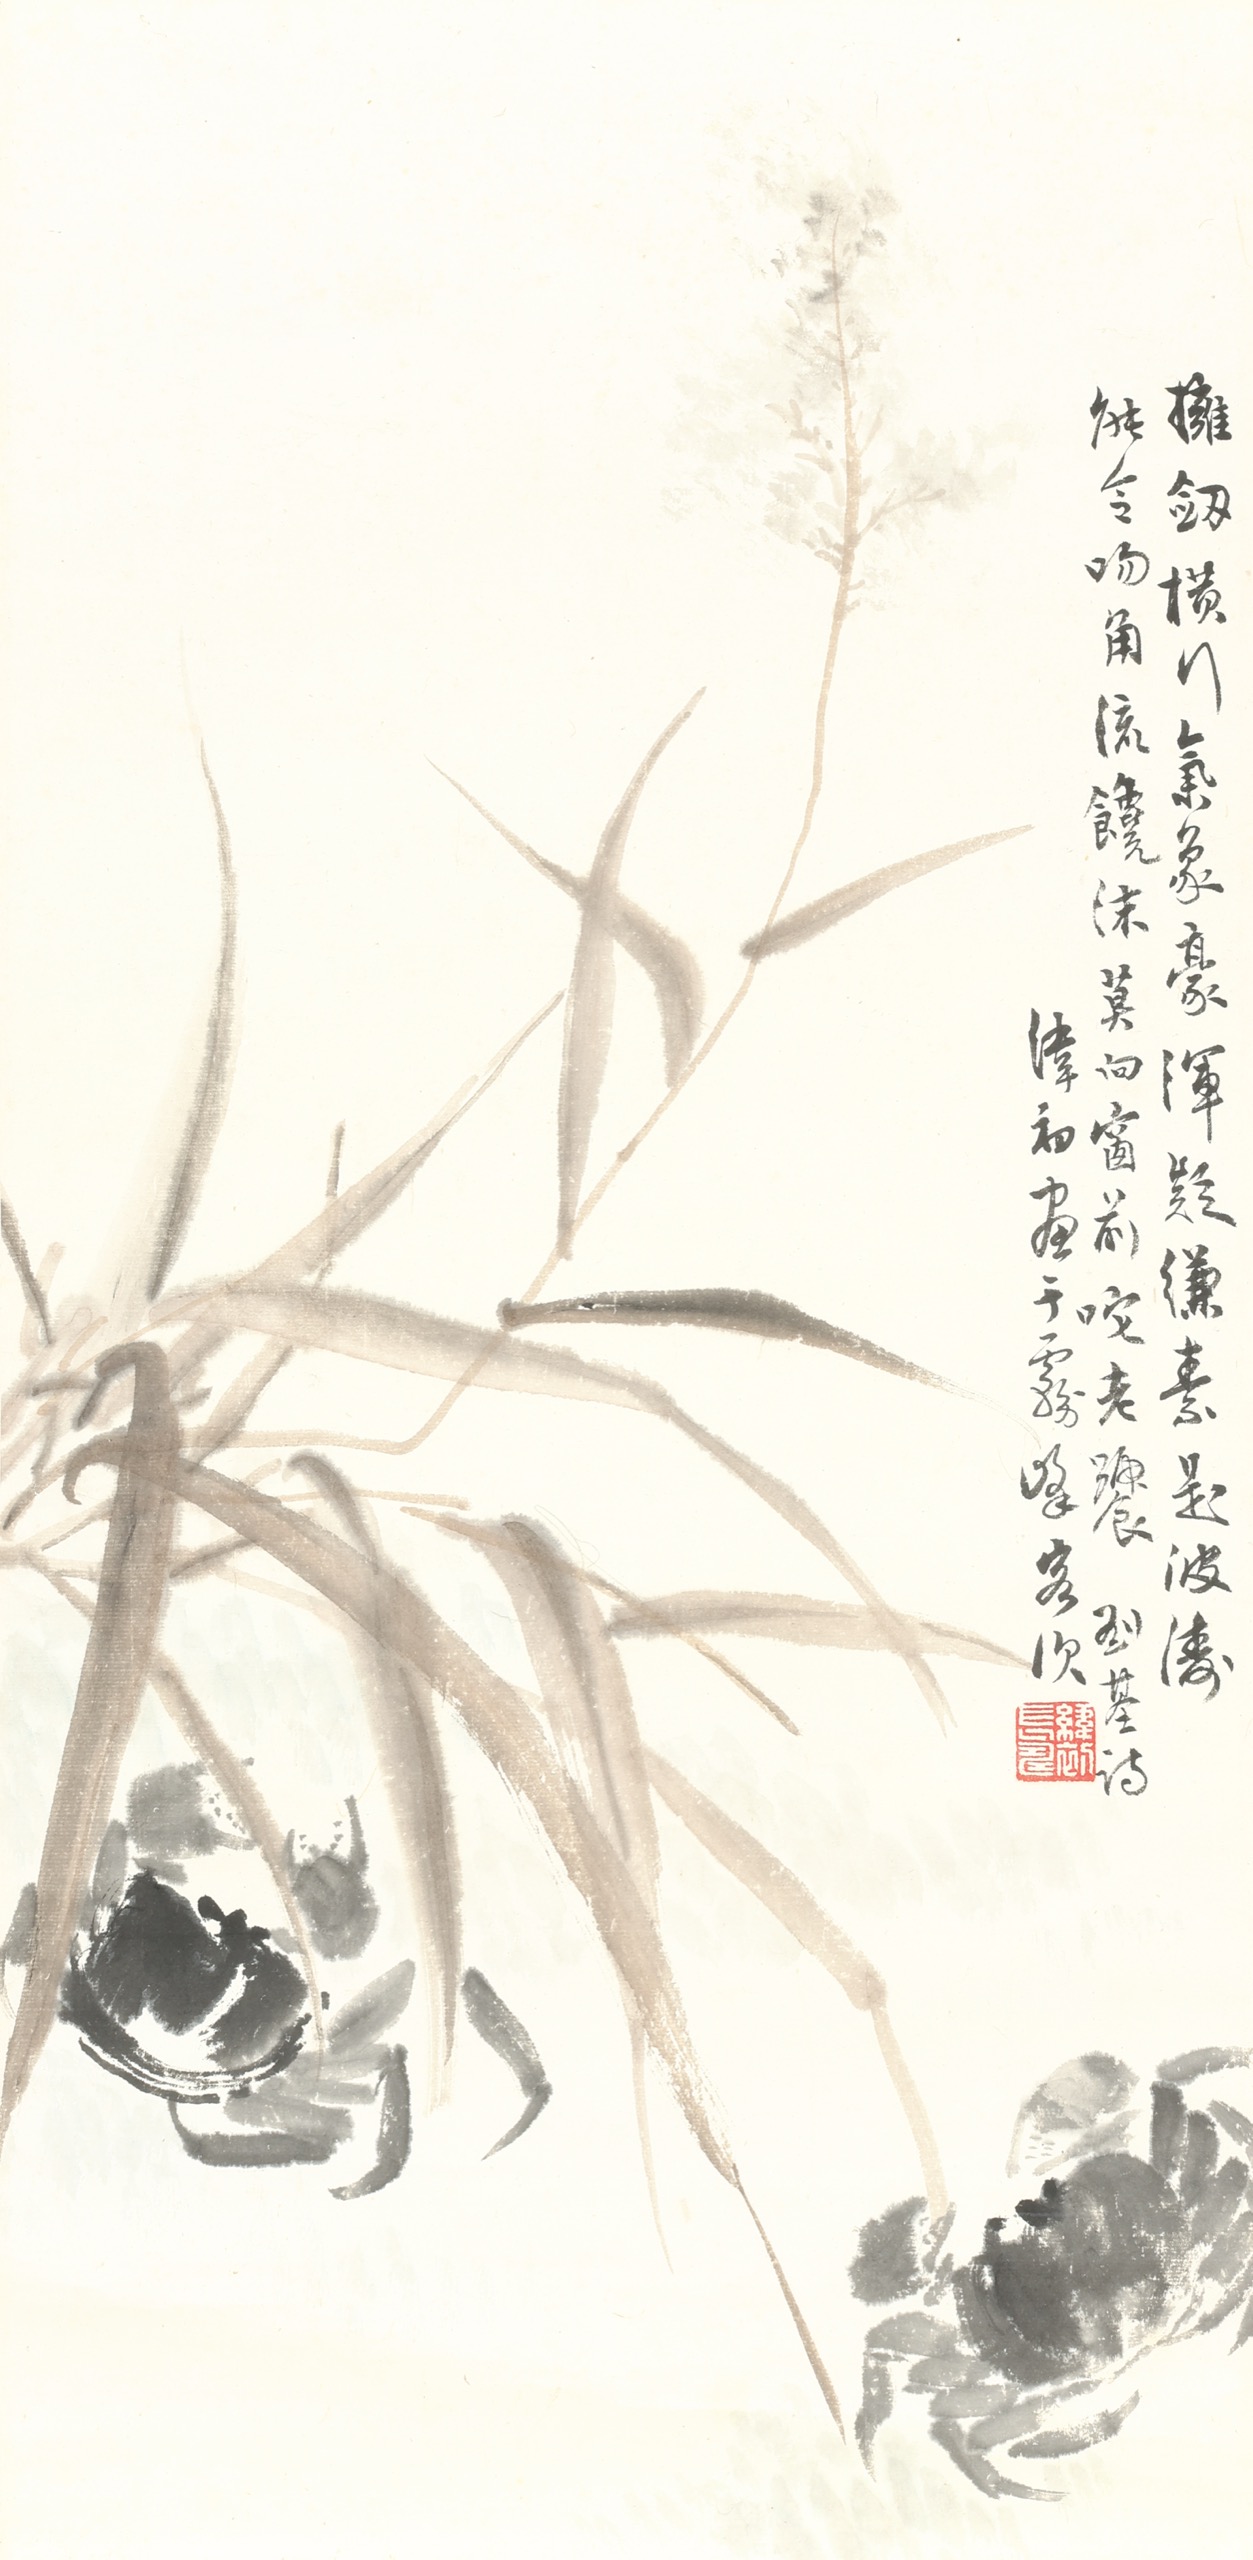 擁劔橫行氣象豪渾疑縑素是波濤
能令吻角流饞沫莫向窗前咤老饕 劉基詩
緯初畫于霧峰客次